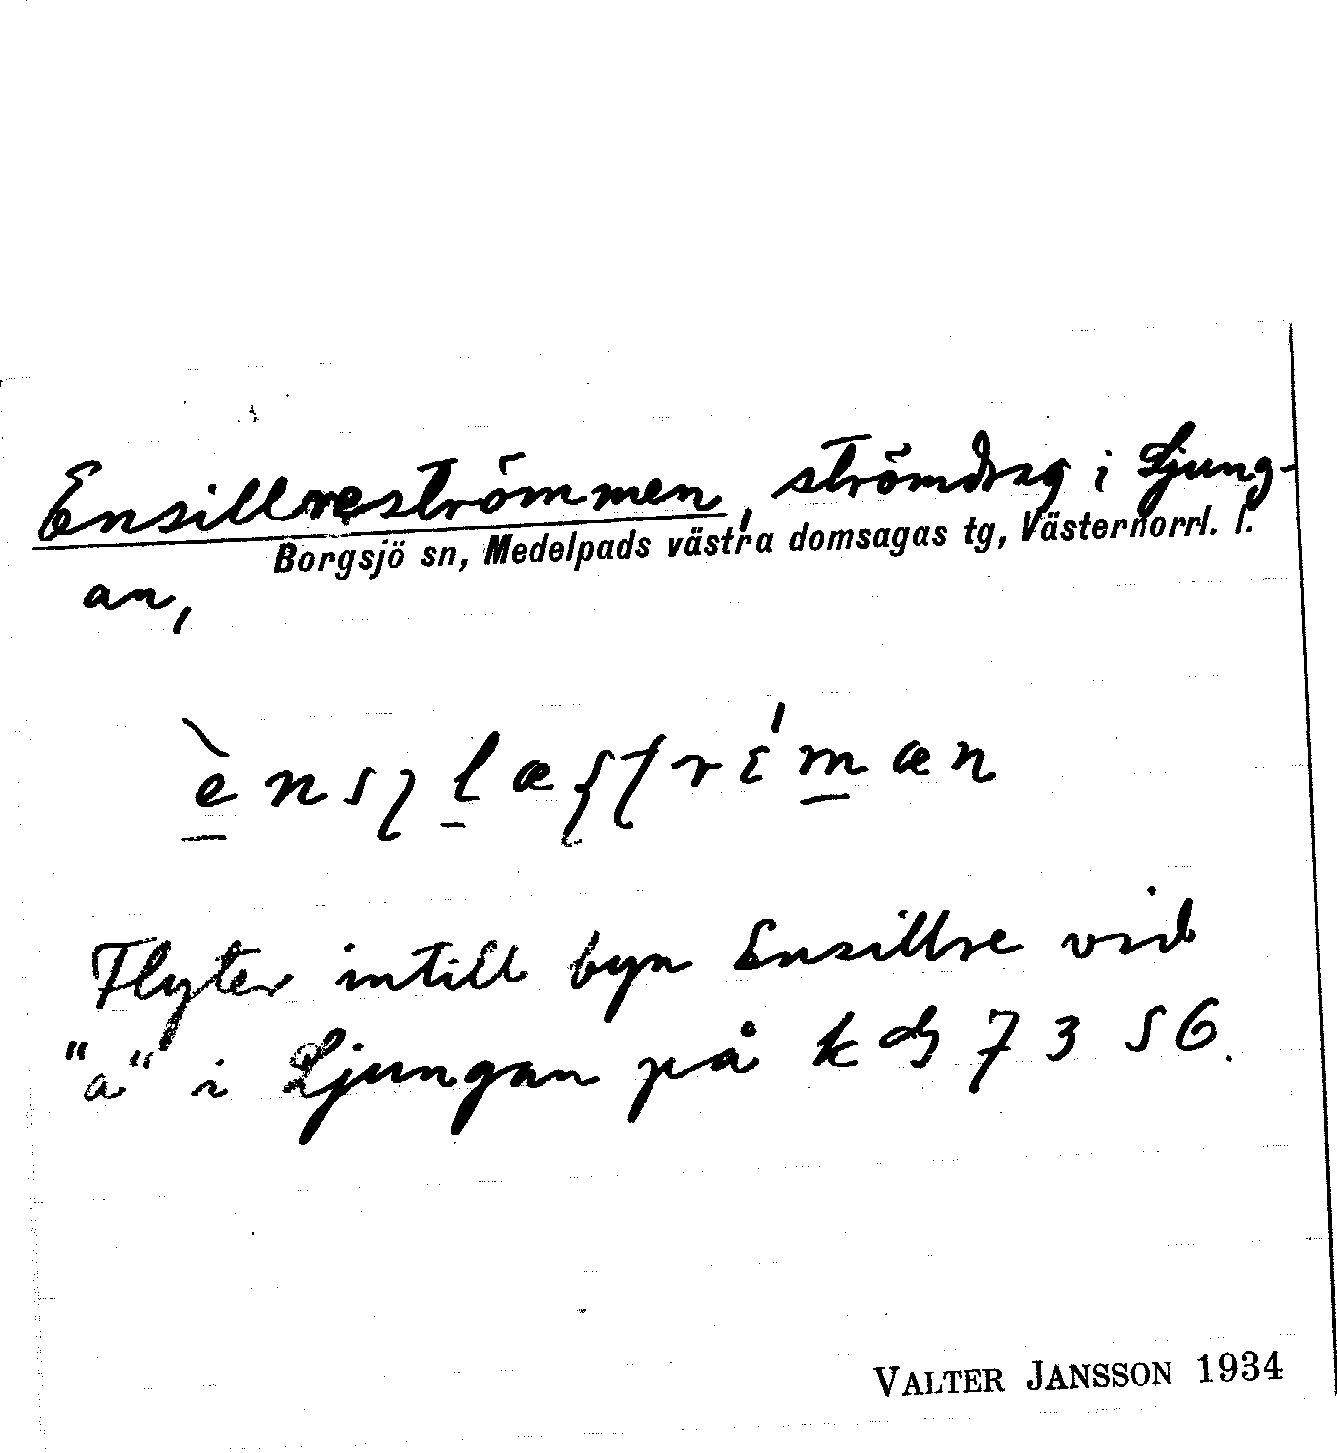 Ensillreströmmen, strömdrag i Ljung-
Borgsjö sn, Medelpads västra domsagas tg, Västernorrl. l.
an,
Flyter intill byn Ensillre vid
"a" i Ljungan på kds 7356.
VALTER JANSSON 1934